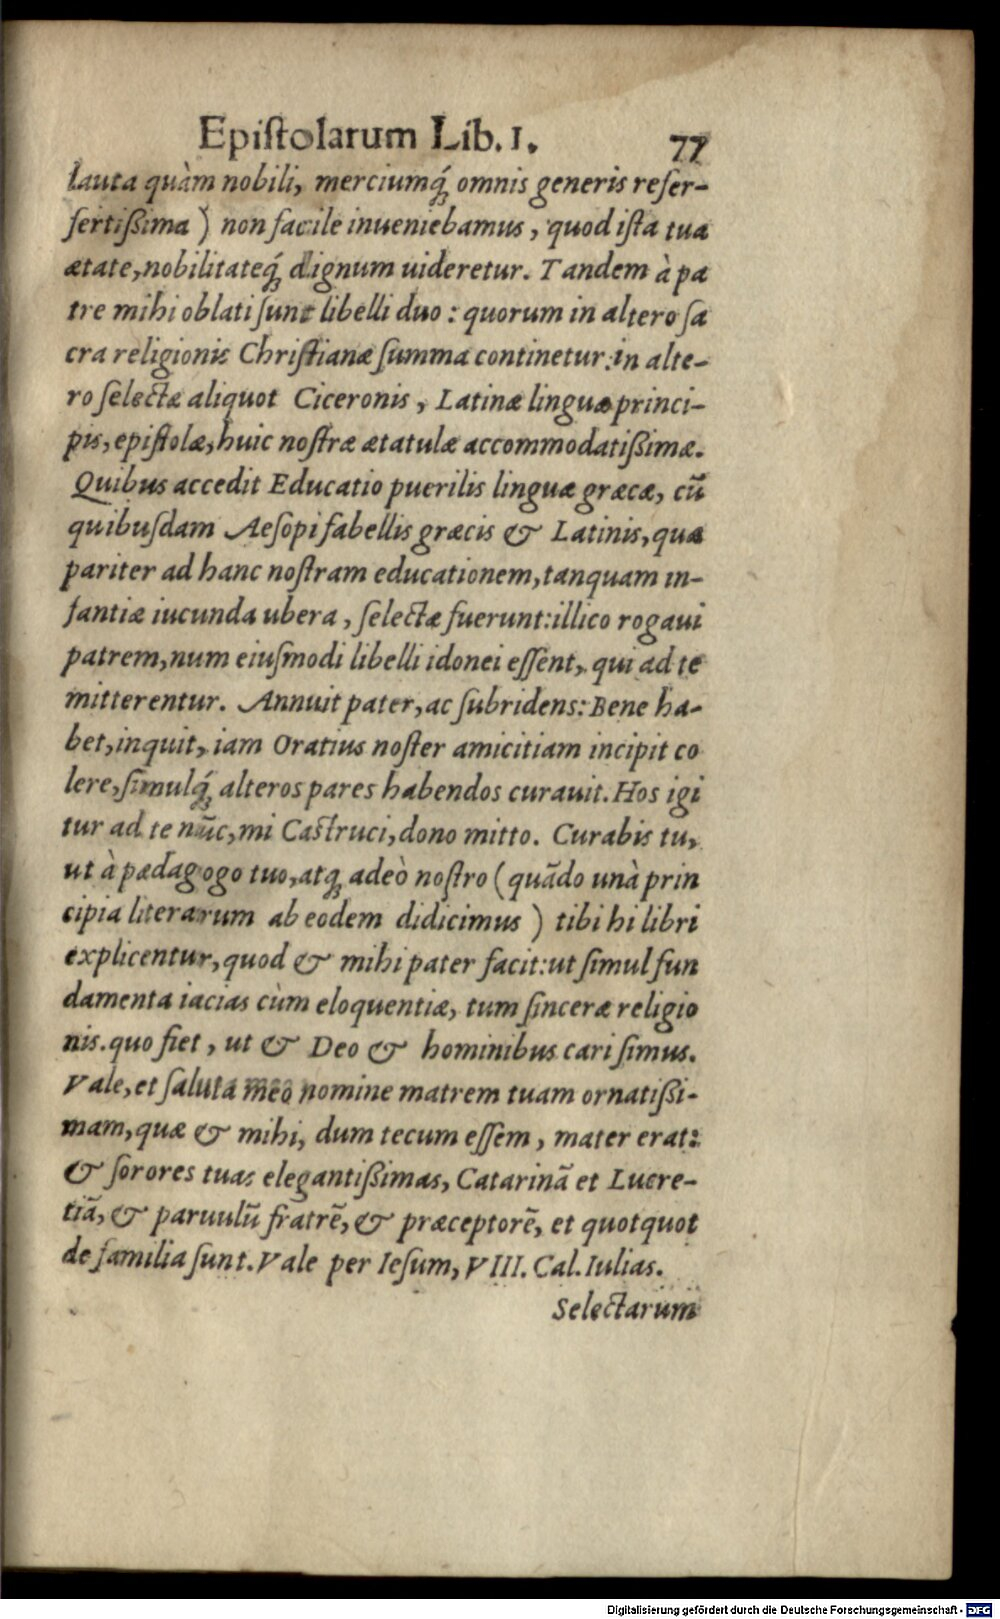 Epiſtolarum Lib. I. 77
lauta quàm nobili, merciumq́; omnis generis refer-
fertißima ) non facile inueniebamus, quod iſta tua
ætate, nobilitateq́; dignum uideretur. Tandem à pa
tre mihi oblati ſunt libelli duo: quorum in altero ſa
cra religionis Chriſtianæ ſumma continetur: in alte-
ro ſelectæ aliquot Ciceronis, Latinæ linguæ princi-
pis, epiſtolæ, huic noſtræ ætatulæ accommodatißimæ.
Quibus accedit Educatio puerilis linguæ græcæ, cū
quibuſdam Aeſopi fabellis græcis & Latinis, quæ
pariter ad hanc noſtram educationem, tanquam in-
fantiæ iucunda ubera, ſelectæ fuerunt: illico rogaui
patrem, num eiuſmodi libelli idonei eſſent, qui ad te
mitterentur. Annuit pater, ac ſubridens: Bene ha-
bet, inquit, iam Oratius noſter amicitiam incipit co
lere, ſimulq́; alteros pares habendos curauit. Hos igi
tur ad te nūc, mi Caſtruci, dono mitto. Curabis tu,
ut à pædagogo tuo, atq; adeò noſtro (quādo unà prin
cipia literarum ab eodem didicimus ) tibi hi libri
explicentur, quod & mihi pater facit: ut ſimul fun
damenta iacias cùm eloquentiæ, tum ſinceræ religio
nis. quo fiet, ut & Deo & hominibus cari ſimus.
Vale, et ſaluta meo nomine matrem tuam ornatißi-
mam, quæ & mihi, dum tecum eſſem, mater erat:
& ſorores tuas elegantißimas, Catarinā et Lucre-
tiā, & paruulū fratrē, & præceptorē, et quotquot
de familia ſunt. Vale per Ieſum, VIII. Cal. Iulias.
Selectarum
Digitalisierung gefördert durch die Deutsche Forschungsgemeinschaft - DFG